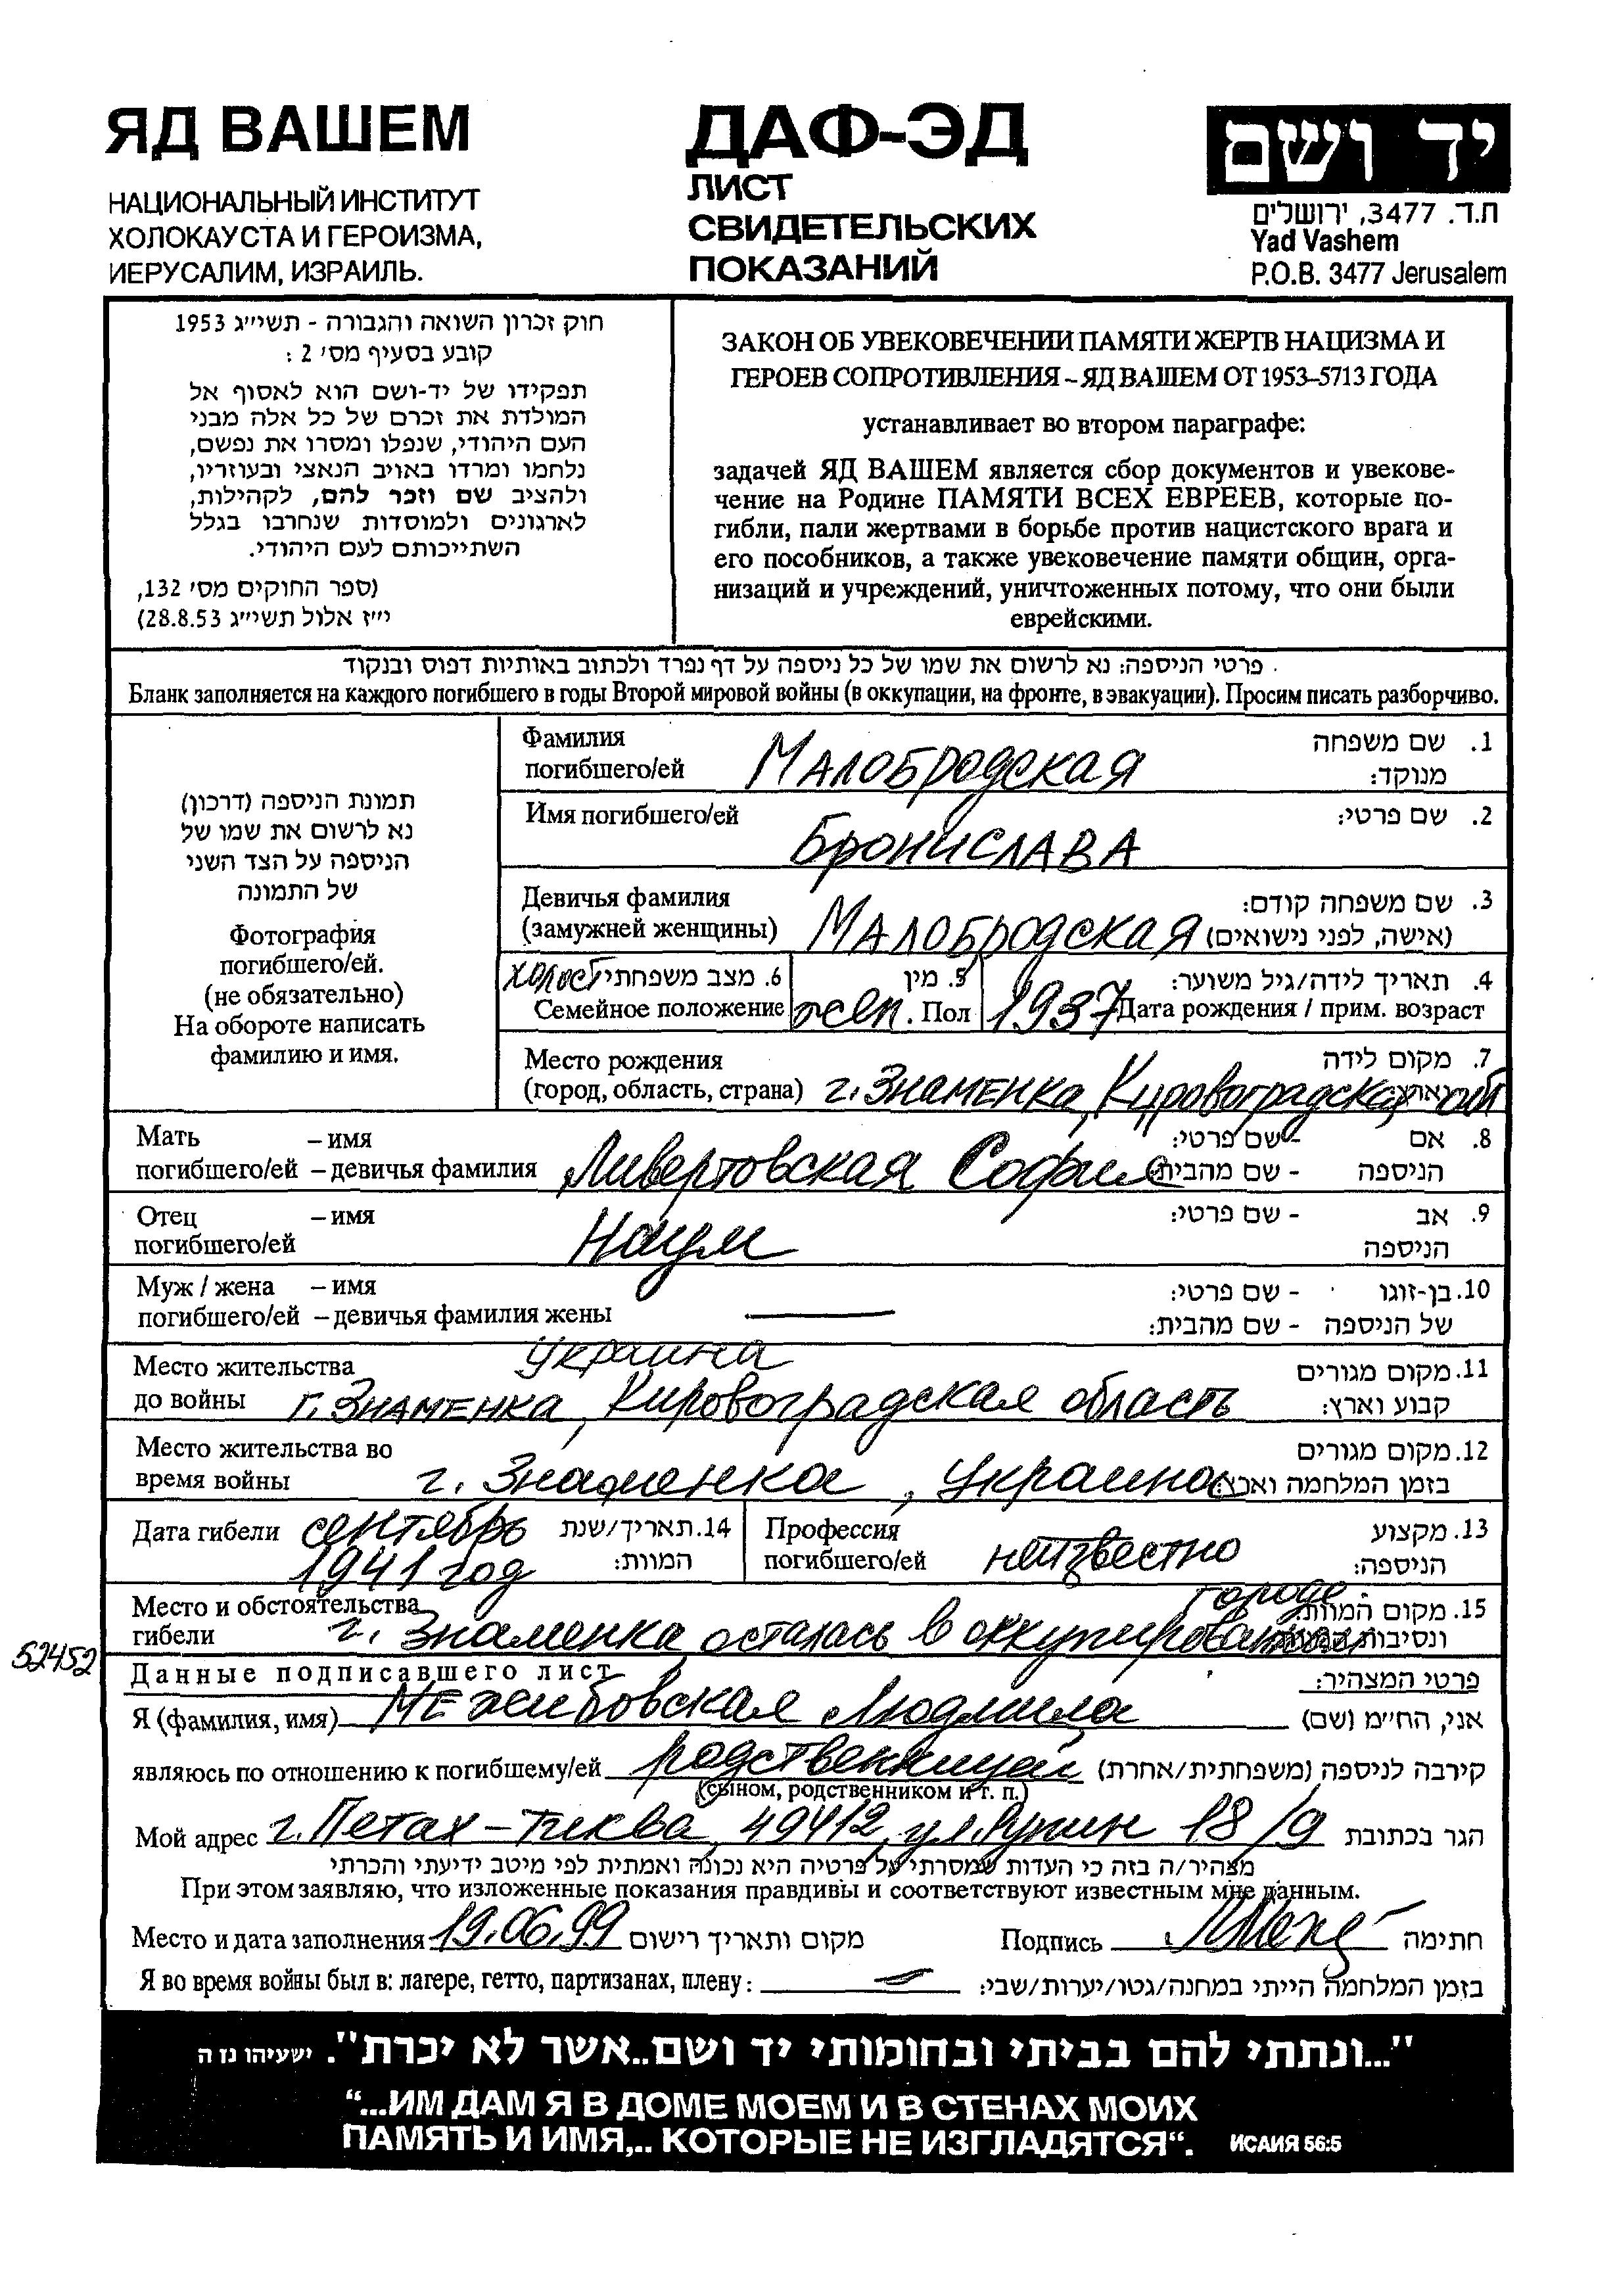 ЯД ВАШЕМ
НАЦИОНАЛЬНЫЙ ИНСТИТУТ
ХОЛОКАУСТА И ГЕРОИЗМА,
ИЕРУСАЛИМ, ИЗРАИЛЬ.
ДАФ-ЭД
ЛИСТ
СВИДЕТЕЛЬСКИХ
ПОКАЗАНИЙ
יד ושם
ת.ד. 3477, ירושלים
Yad Vashem
P.O.B. 3477 Jerusalem
חוק זכרון השואה והגבורה - תשי״ג 1953
קובע בסעיף מס׳ 2 :
תפקידו של יד-ושם הוא לאסוף אל
המולדת את זכרם של כל אלה מבני
העם היהודי, שנפלו ומסרו את נפשם,
נלחמו ומרדו באויב הנאצי ובעוזריו,
ולהציב שם וזכר להם, לקהילות,
לארגונים ולמוסדות שנחרבו בגלל
השתייכותם לעם היהודי.
(ספר החוקים מס׳ 132,
י״ז אלול תשי״ג 28.8.53)
ЗАКОН ОБ УВЕКОВЕЧЕНИИ ПАМЯТИ ЖЕРТВ НАЦИЗМА И
ГЕРОЕВ СОПРОТИВЛЕНИЯ – ЯД ВАШЕМ ОТ 1953–5713 ГОДА
устанавливает во втором параграфе:
задачей ЯД ВАШЕМ является сбор документов и увекове-
чение на Родине ПАМЯТИ ВСЕХ ЕВРЕЕВ, которые по-
гибли, пали жертвами в борьбе против нацистского врага и
его пособников, а также увековечение памяти общин, орга-
низаций и учреждений, уничтоженных потому, что они были
еврейскими.
פרטי הניספה: נא לרשום את שמו של כל ניספה על דף נפרד ולכתוב באותיות דפוס ובנקוד
Бланк заполняется на каждого погибшего в годы Второй мировой войны (в оккупации, на фронте, в эвакуации). Просим писать разборчиво.
תמונת הניספה (דרכון)
נא לרשום את שמו של
הניספה על הצד השני
של התמונה
Фотография
погибшего/ей.
(не обязательно)
На обороте написать
фамилию и имя.
Фамилия שם משפחה .1
погибшего/ей Малобродская מנוקד:
Имя погибшего/ей שם פרטי: .2
Бронислава
Девичья фамилия שם משפחה קודם: .3
(замужней женщины) Малобродская (אישה, לפני נישואים)
холост 6. מצב משפחתי 5. מין תאריך לידה/גיל משוער: .4
Семейное положение жен. Пол 1937 Дата рождения / прим. возраст
Место рождения מקום לידה .7
(город, область, страна) г. Знаменка, Кировоградская обл
Мать – имя - שם פרטי: אם .8
погибшего/ей – девичья фамилия Ливертовская София - שם מהבית: הניספה
Отец – имя - שם פרטי: אב .9
погибшего/ей Наум הניספה
Муж / жена – имя - שם פרטי: בן-זוגו .10
погибшего/ей – девичья фамилия жены - שם מהבית: של הניספה
Украина
Место жительства מקום מגורים .11
до войны г. Знаменка, Кировоградская область קבוע וארץ:
Место жительства во מקום מגורים .12
время войны г. Знаменка, Украина בזמן המלחמה וארץ:
Дата гибели сентябрь 14. תאריך/שנת Профессия מקצוע .13
1941 год המוות: погибшего/ей неизвестно הניספה:
городе.
Место и обстоятельства מקום המוות .15
гибели г. Знаменка осталась в оккупированном
52452
Данные подписавшего лист פרטי המצהיר:
Я (фамилия, имя) Межибовская Людмила אני, הח״מ (שם)
являюсь по отношению к погибшему/ей родственницей קירבה לניספה (משפחתית/אחרת)
(сыном, родственником и т. п.)
Мой адрес г. Петах-Тиква, 49412, ул. Рупин 18/9 הגר בכתובת
מצהיר/ה בזה כי העדות שמסרתי על פרטיה היא נכונה ואמתית לפי מיטב ידיעתי והכרתי
При этом заявляю, что изложенные показания правдивы и соответствуют известным мне данным.
Место и дата заполнения 19.06.99 מקום ותאריך רישום Подпись חתימה
Я во время войны был в: лагере, гетто, партизанах, плену: בזמן המלחמה הייתי במחנה/גטו/יערות/שבי:
"...ונתתי להם בביתי ובחומותי יד ושם..אשר לא יכרת". ישעיהו נו ה
“...ИМ ДАМ Я В ДОМЕ МОЕМ И В СТЕНАХ МОИХ
ПАМЯТЬ И ИМЯ,.. КОТОРЫЕ НЕ ИЗГЛАДЯТСЯ“. ИСАИЯ 56:5